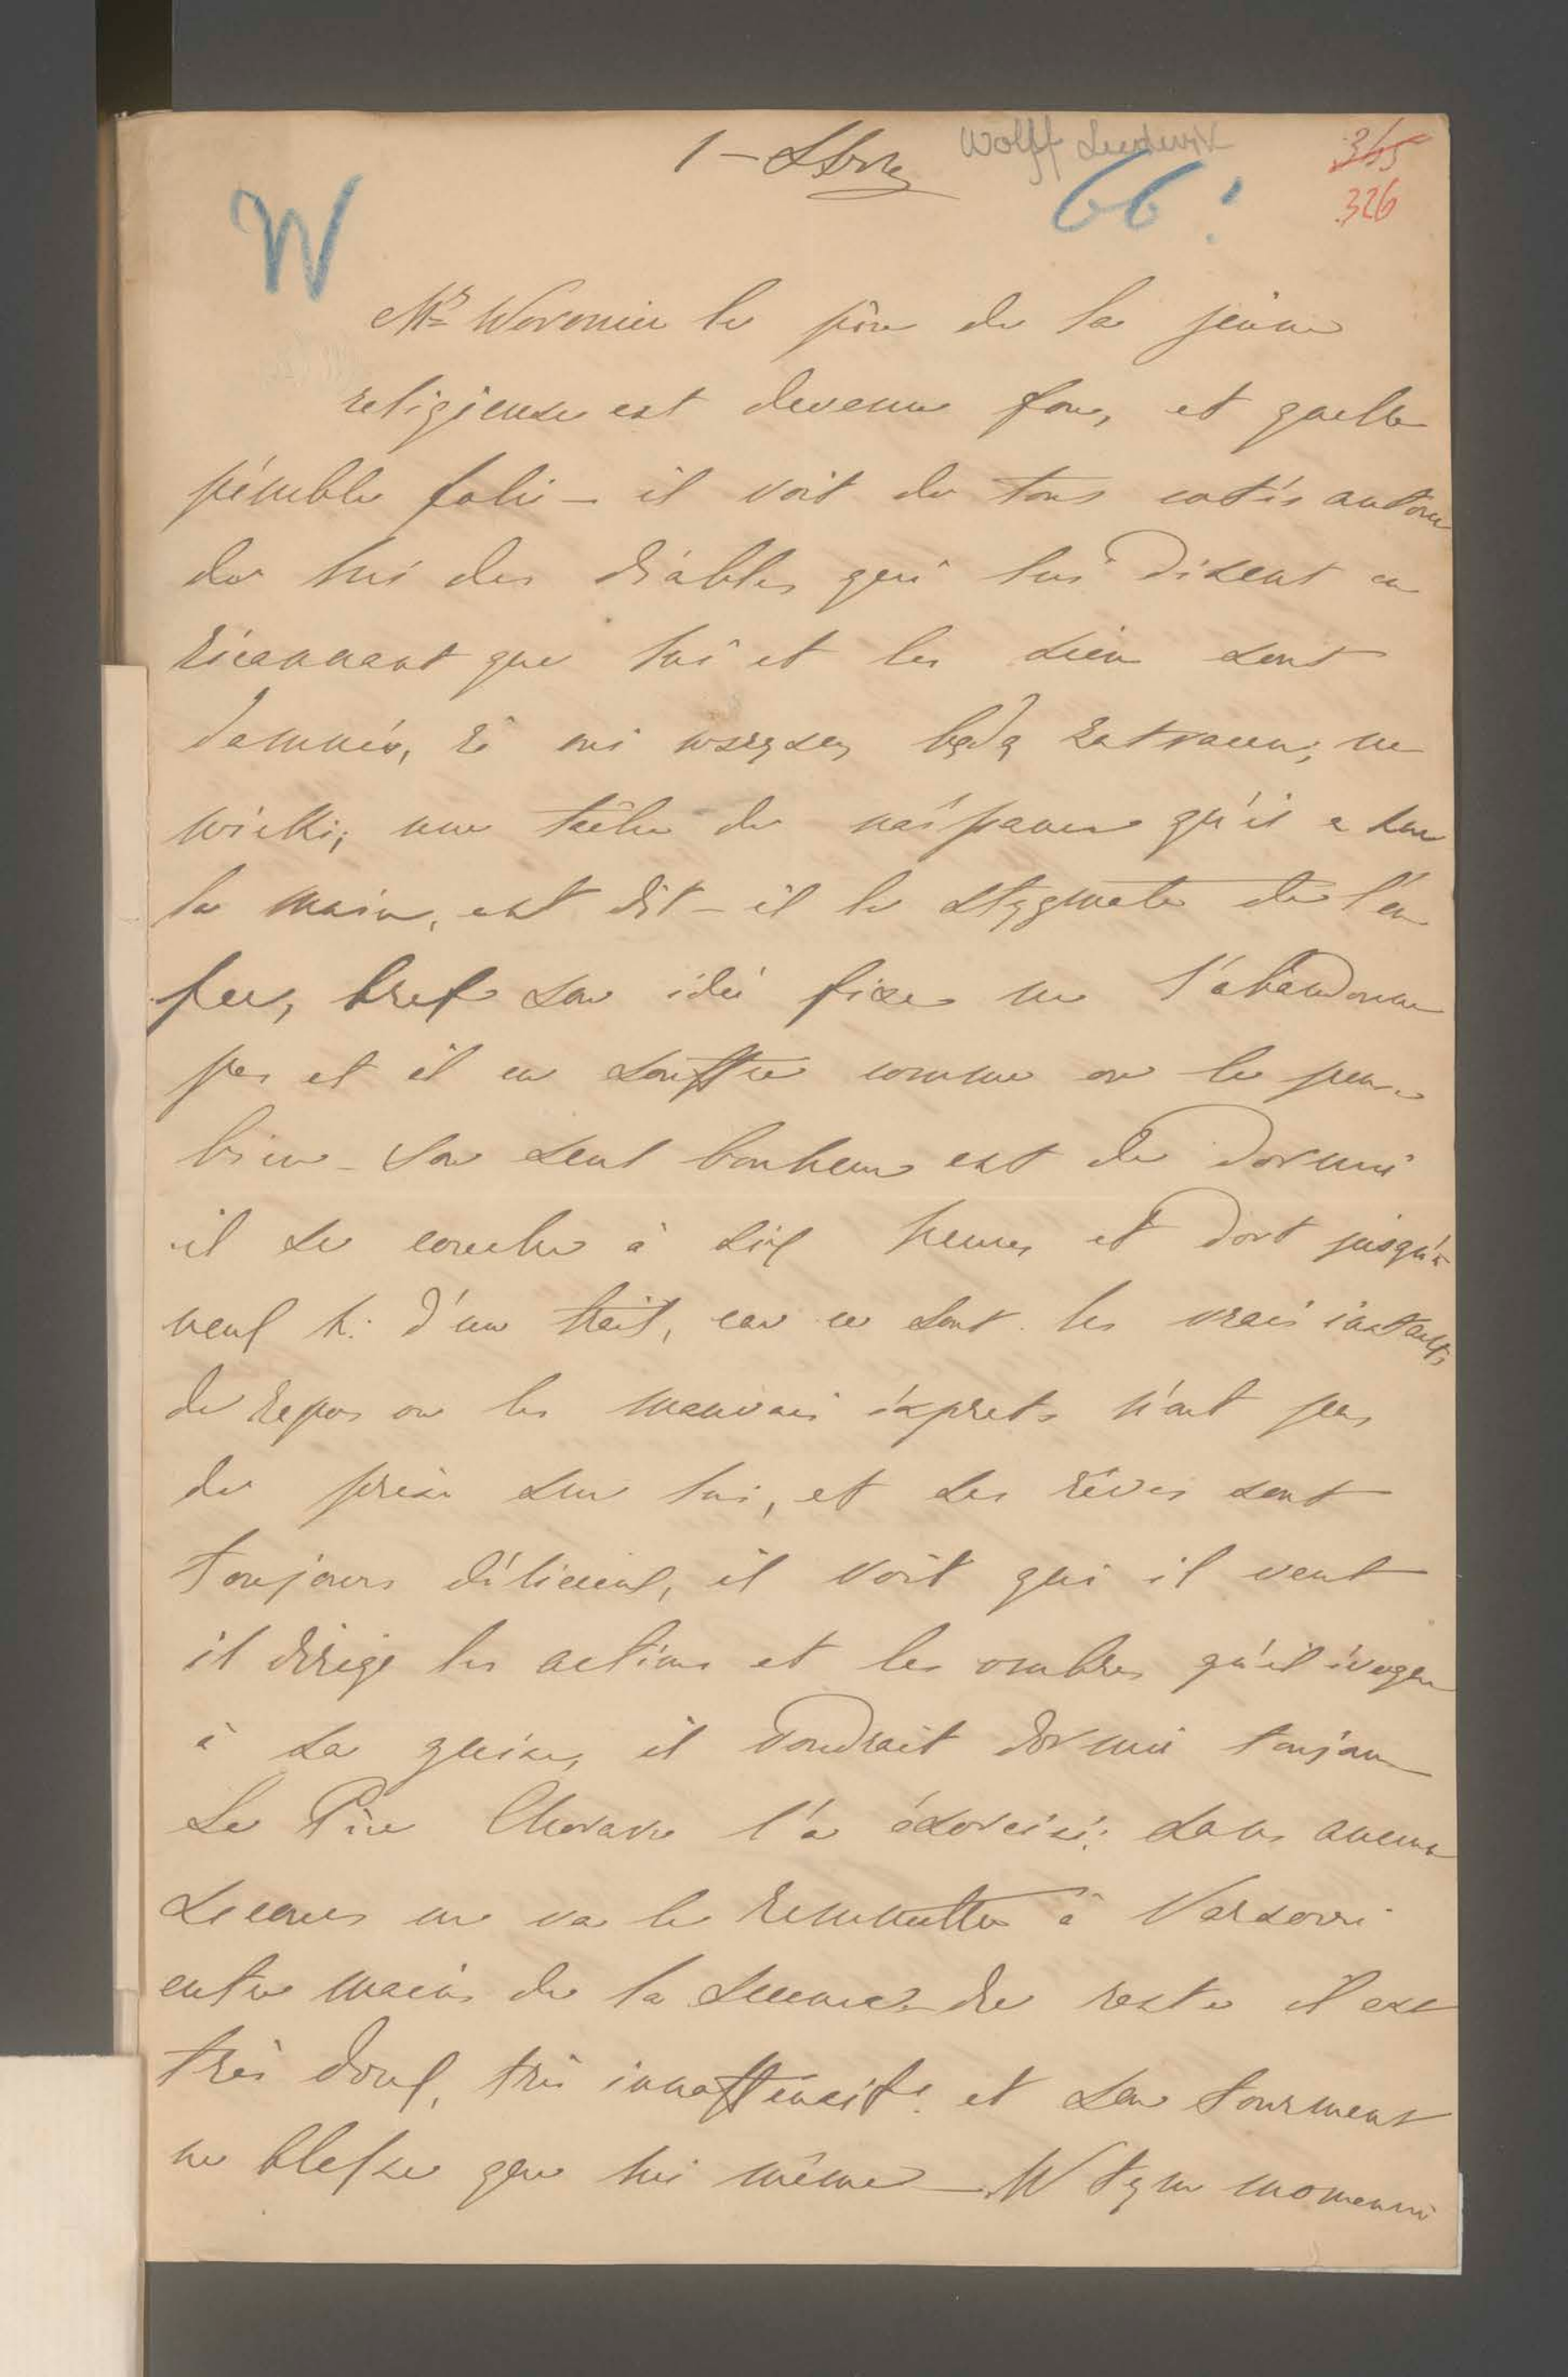 1 –
Wolff Ludwik
365
326
66!
W
Mr Woronin le père de la jeune
religieuse est devenu fou, et quelle
pénible folie – il voit de tous cotés autour
de lui des diables qui lui disent en
ricannant que lui et les siens sont
damnés, że oni wszyscy będą zatraceni, na
wieki; une tâche de naissance qu'il a sur
la main, est dit-il le stygmate de l'en
fer, bref son idée fixe ne l'abandonne
pas et il en souffre comme on le pense
bien – Son seul bonheur est de dormir
il se couche à six heures et dort jusqu'à
neuf h. d'un trait, car ce sont les vrais instants
de repos ou les mauvais esprits n'ont pas
de prise sur lui, et ses rêves sont
toujours délicieux, il voit qui il veut
il dirige les actions et les ombres qu'il évoque
à sa guise, il voudrait dormir toujours
Le Père l'a éxorcisé; sans aucun
succes on va le remmettre à Varsovie
entre mains de la science – du reste il est
très doux, très innoffensif et son tourment
ne blesse que lui même – W tym momencie